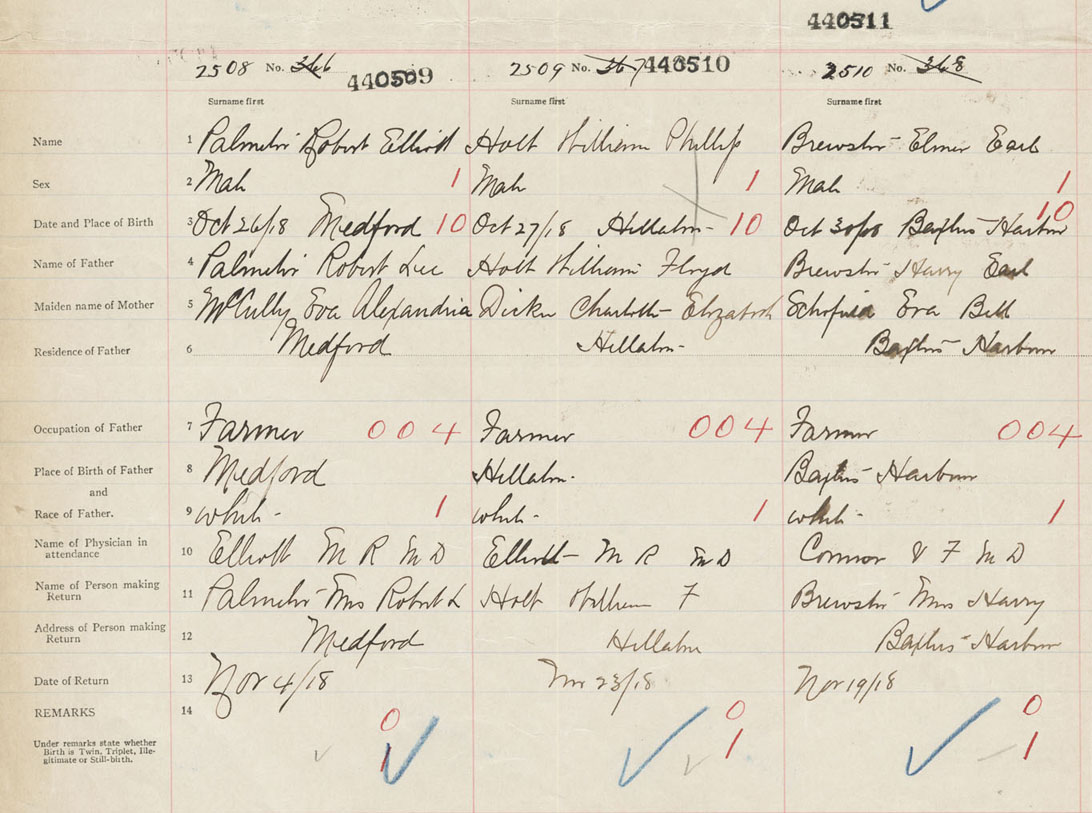 440511
2508 No. 366 440509 2509 No. 367 440510 2510 No. 368
Surname first Surname first Surname first
Name 1 Robert Elliott Holt William Phillip Brewster Elmer Earl
Sex 2 Male 1 Male 1 Male 1
Date and Place of Birth 3 Oct 26/18 Medford 10 Oct 27/18 10 Oct 30/18 Harbour 10
Name of Father 4 Robert Lee Holt William Floyd Brewster Harry Earl
Maiden name of Mother 5 McCully Eva Alexandria Charlotte Elizabeth Schofield Eva Bell
Residence of Father 6 Medford Harbour
Occupation of Father 7 Farmer 004 Farmer 004 Farmer 004
Place of Birth of Father 8 Medford Harbour
and
Race of Father. 9 White - 1 White - 1 White - 1
Name of Physician in
attendance 10 Elliott M R M D Elliott M R M D F M D
Name of Person making
Return 11 Mrs Robert L Holt William F Brewster Mrs Harry
Address of Person making
Return 12 Medford Harbour
Date of Return 13 Nov 4/18 Nov 23/18 Nov 19/18
REMARKS 14 0 0 0
Under remarks state whether
Birth is Twin, Triplet, Ille-
gitimate or Still-birth. 1 1 1